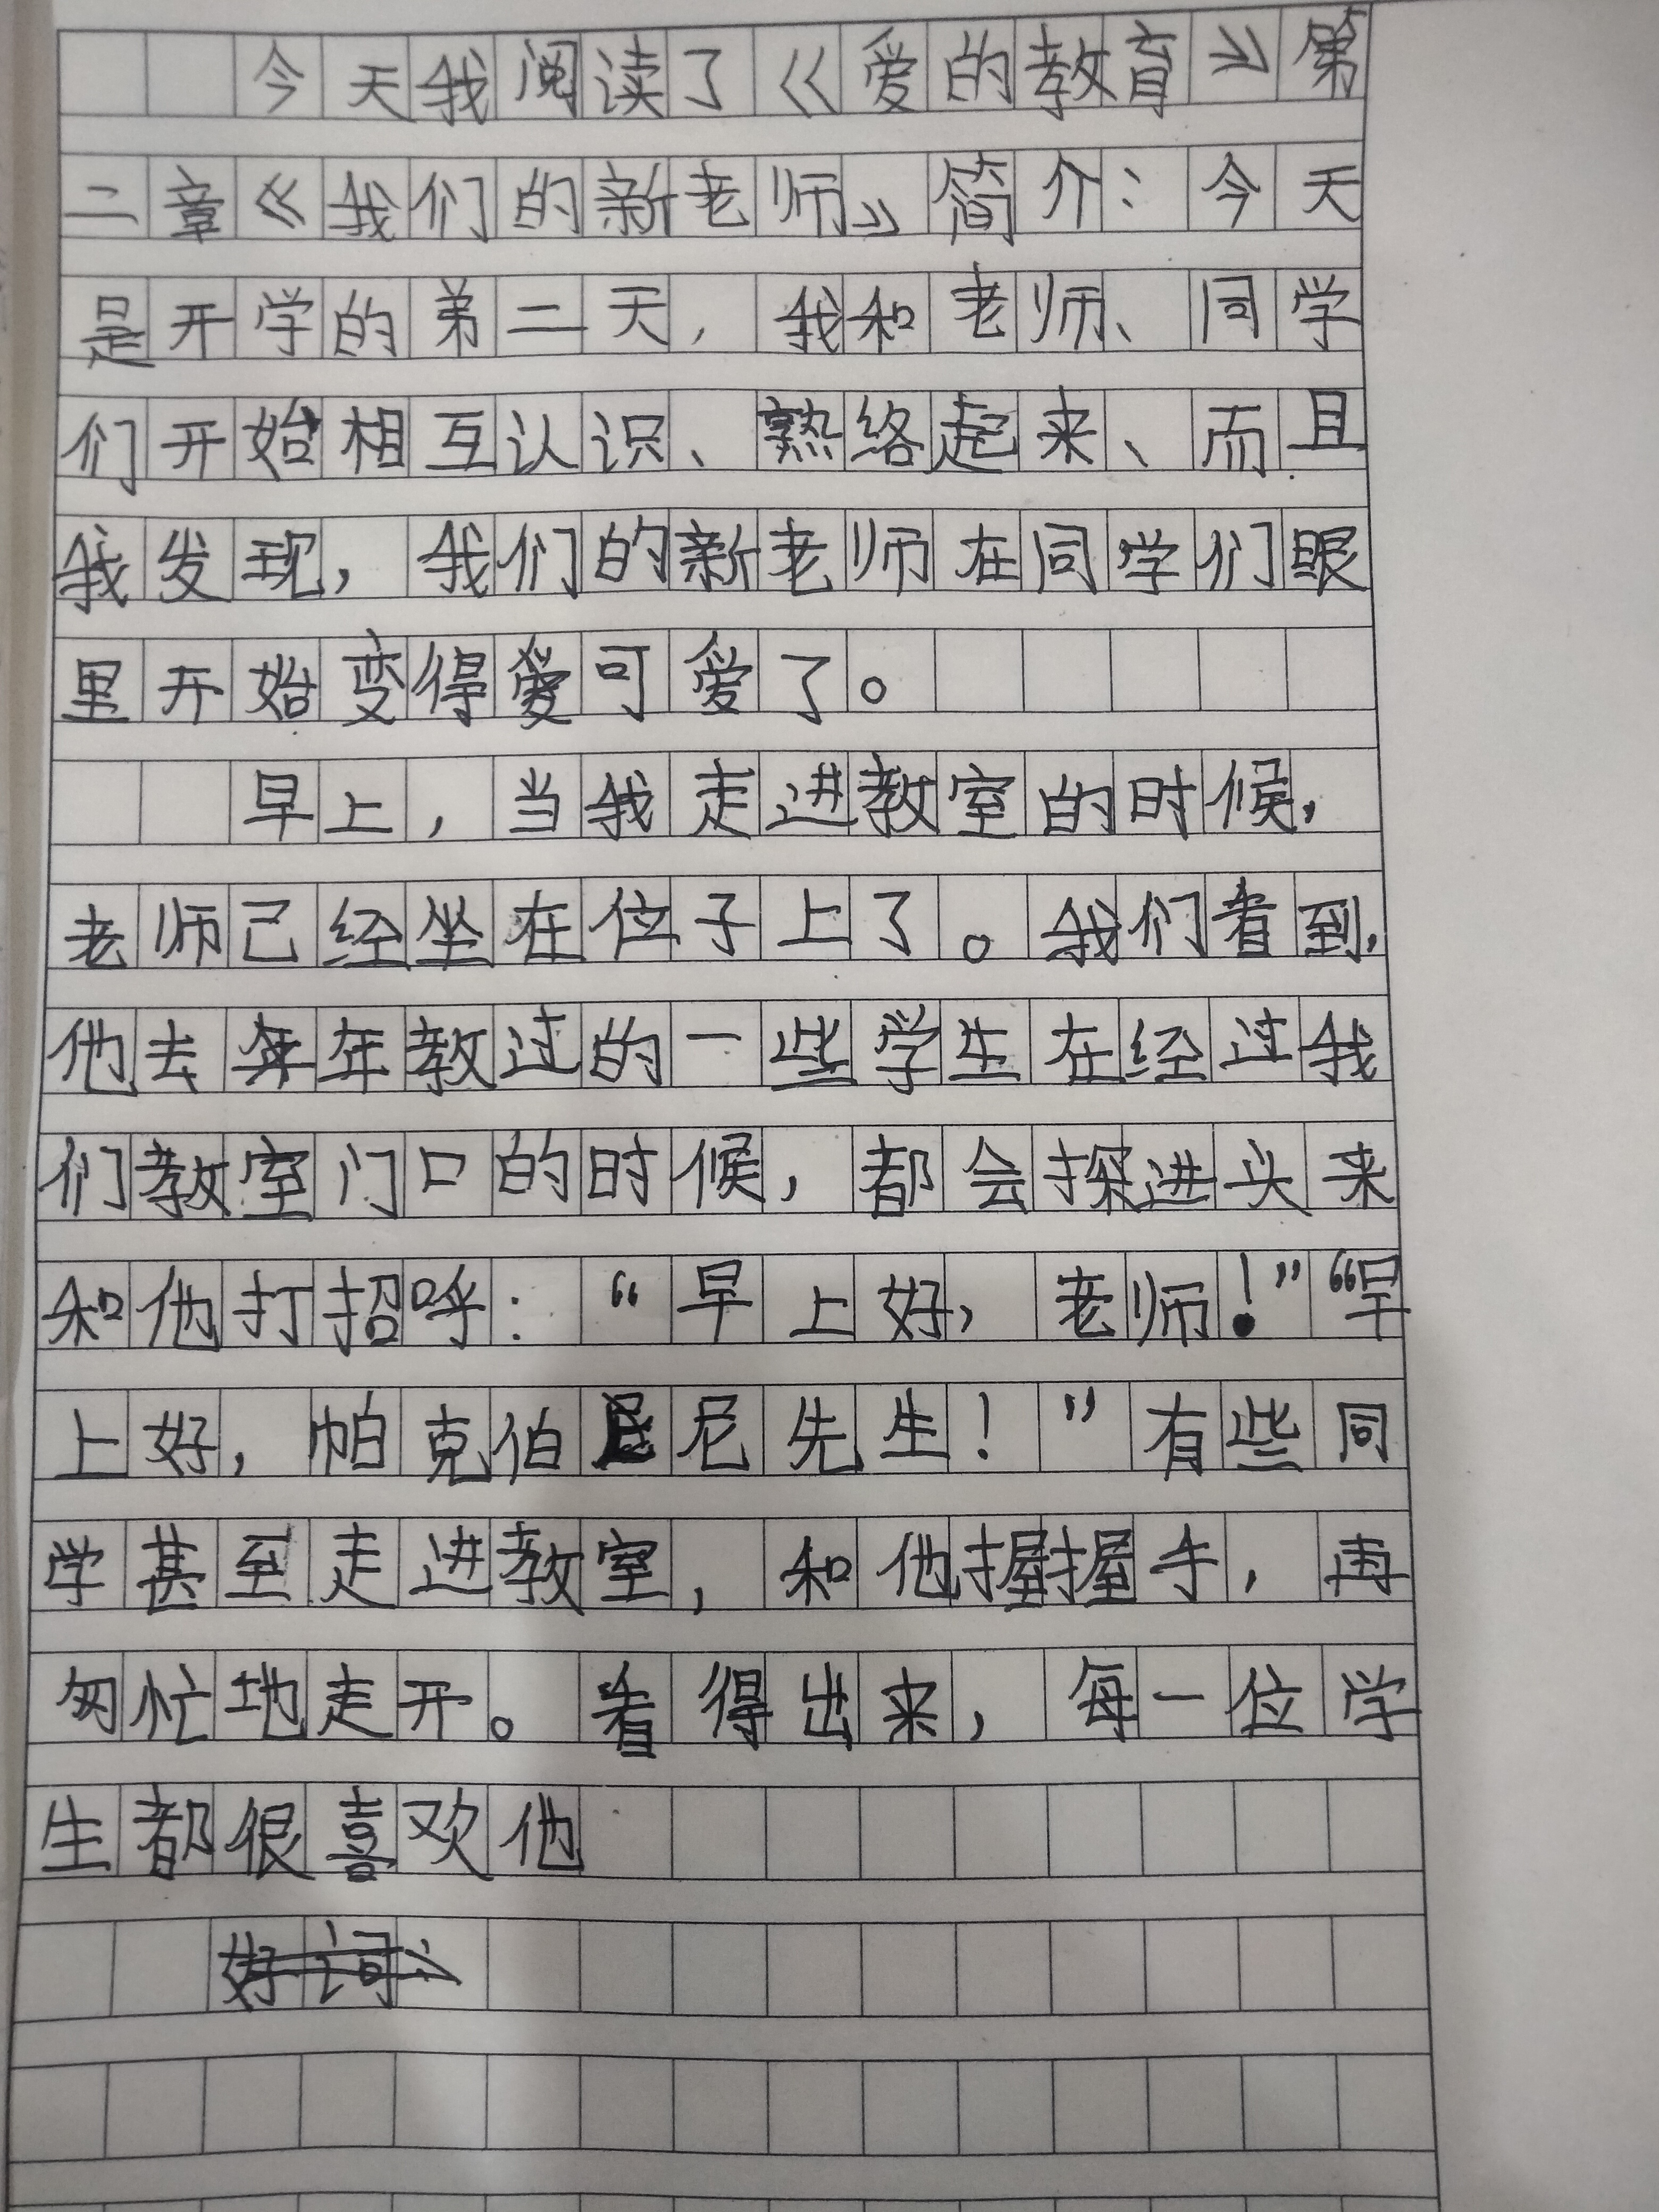 今天我阅读了《爱的教育》第
二章《我们的新老师》简介：今天
是开学的第二天，我和老师、同学
们开始相互认识、熟络起来、而且
我发现，我们的新老师在同学们眼
里开始变得可爱了。
早上，当我走进教室的时候，
老师己经坐在位子上了。我们看到，
他去年教过的一些学生在经过我
们教室门口的时候，都会探进头来
和他打招呼：“早上好，老师！”“早
上好，帕克伯尼先生！”有些同
学甚至走进教室，和他握握手，再
匆忙地走开。看得出来，每一位学
生都很喜欢他
好词：